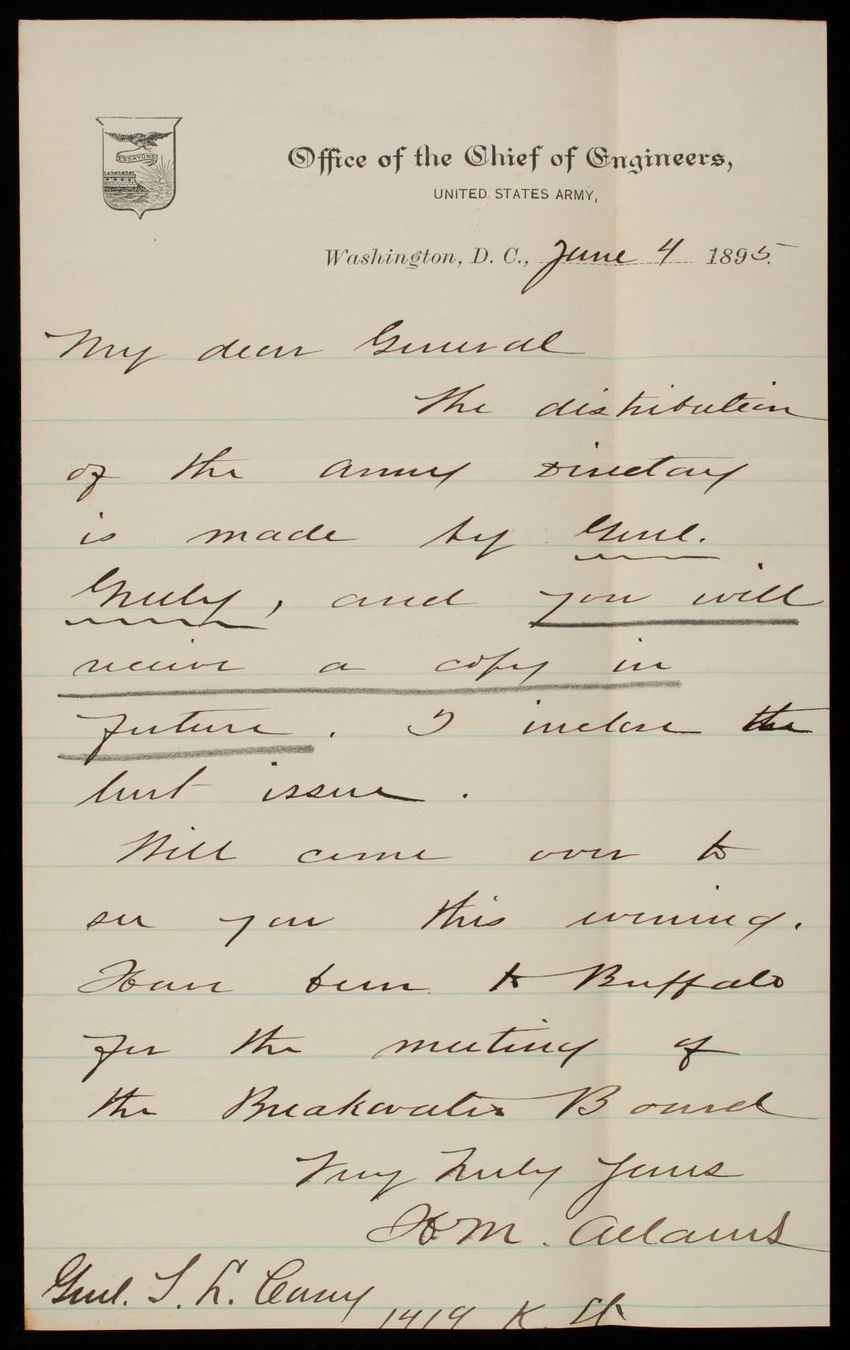 ESSAYONS
Office of the Chief of Engineers,
UNITED STATES ARMY,
Washington, D. C., June 4 1895.
My dear General
The distribution
of the Army Directory
is made by Genl.
Greely, and you will
receive a copy in
future. I inclose the
last issue.
Will come over to
see you this evening.
Have been to Buffalo
for the meeting of
the Breakwater Board
Very truly yours
H M. Adams
Genl. T. L. Casey
1419 K St